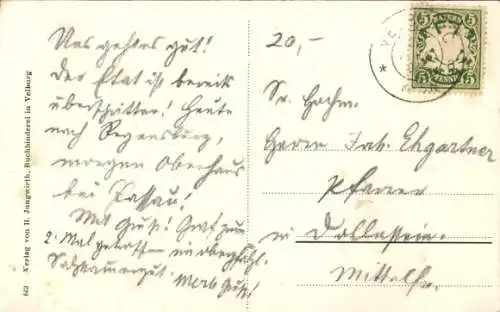 Uns gehts gut!
Der Etat ist bereits
überschritten! Heute
nach Regensburg,
morgen Oberhaus
bei Passau!
Mit Gruß! Graf zum
2. Mal getroffen im
Salzkammergut. Gruß!
20,-
Sr. Hochw.
Herrn Joh. Ehgartner
Pfarrer
in Dollnstein.
Mittelfr.
BAYERN
5 5
5 PFENNIG 5
662 Verlag von H. Jungwirth, Buchbinderei in Velburg